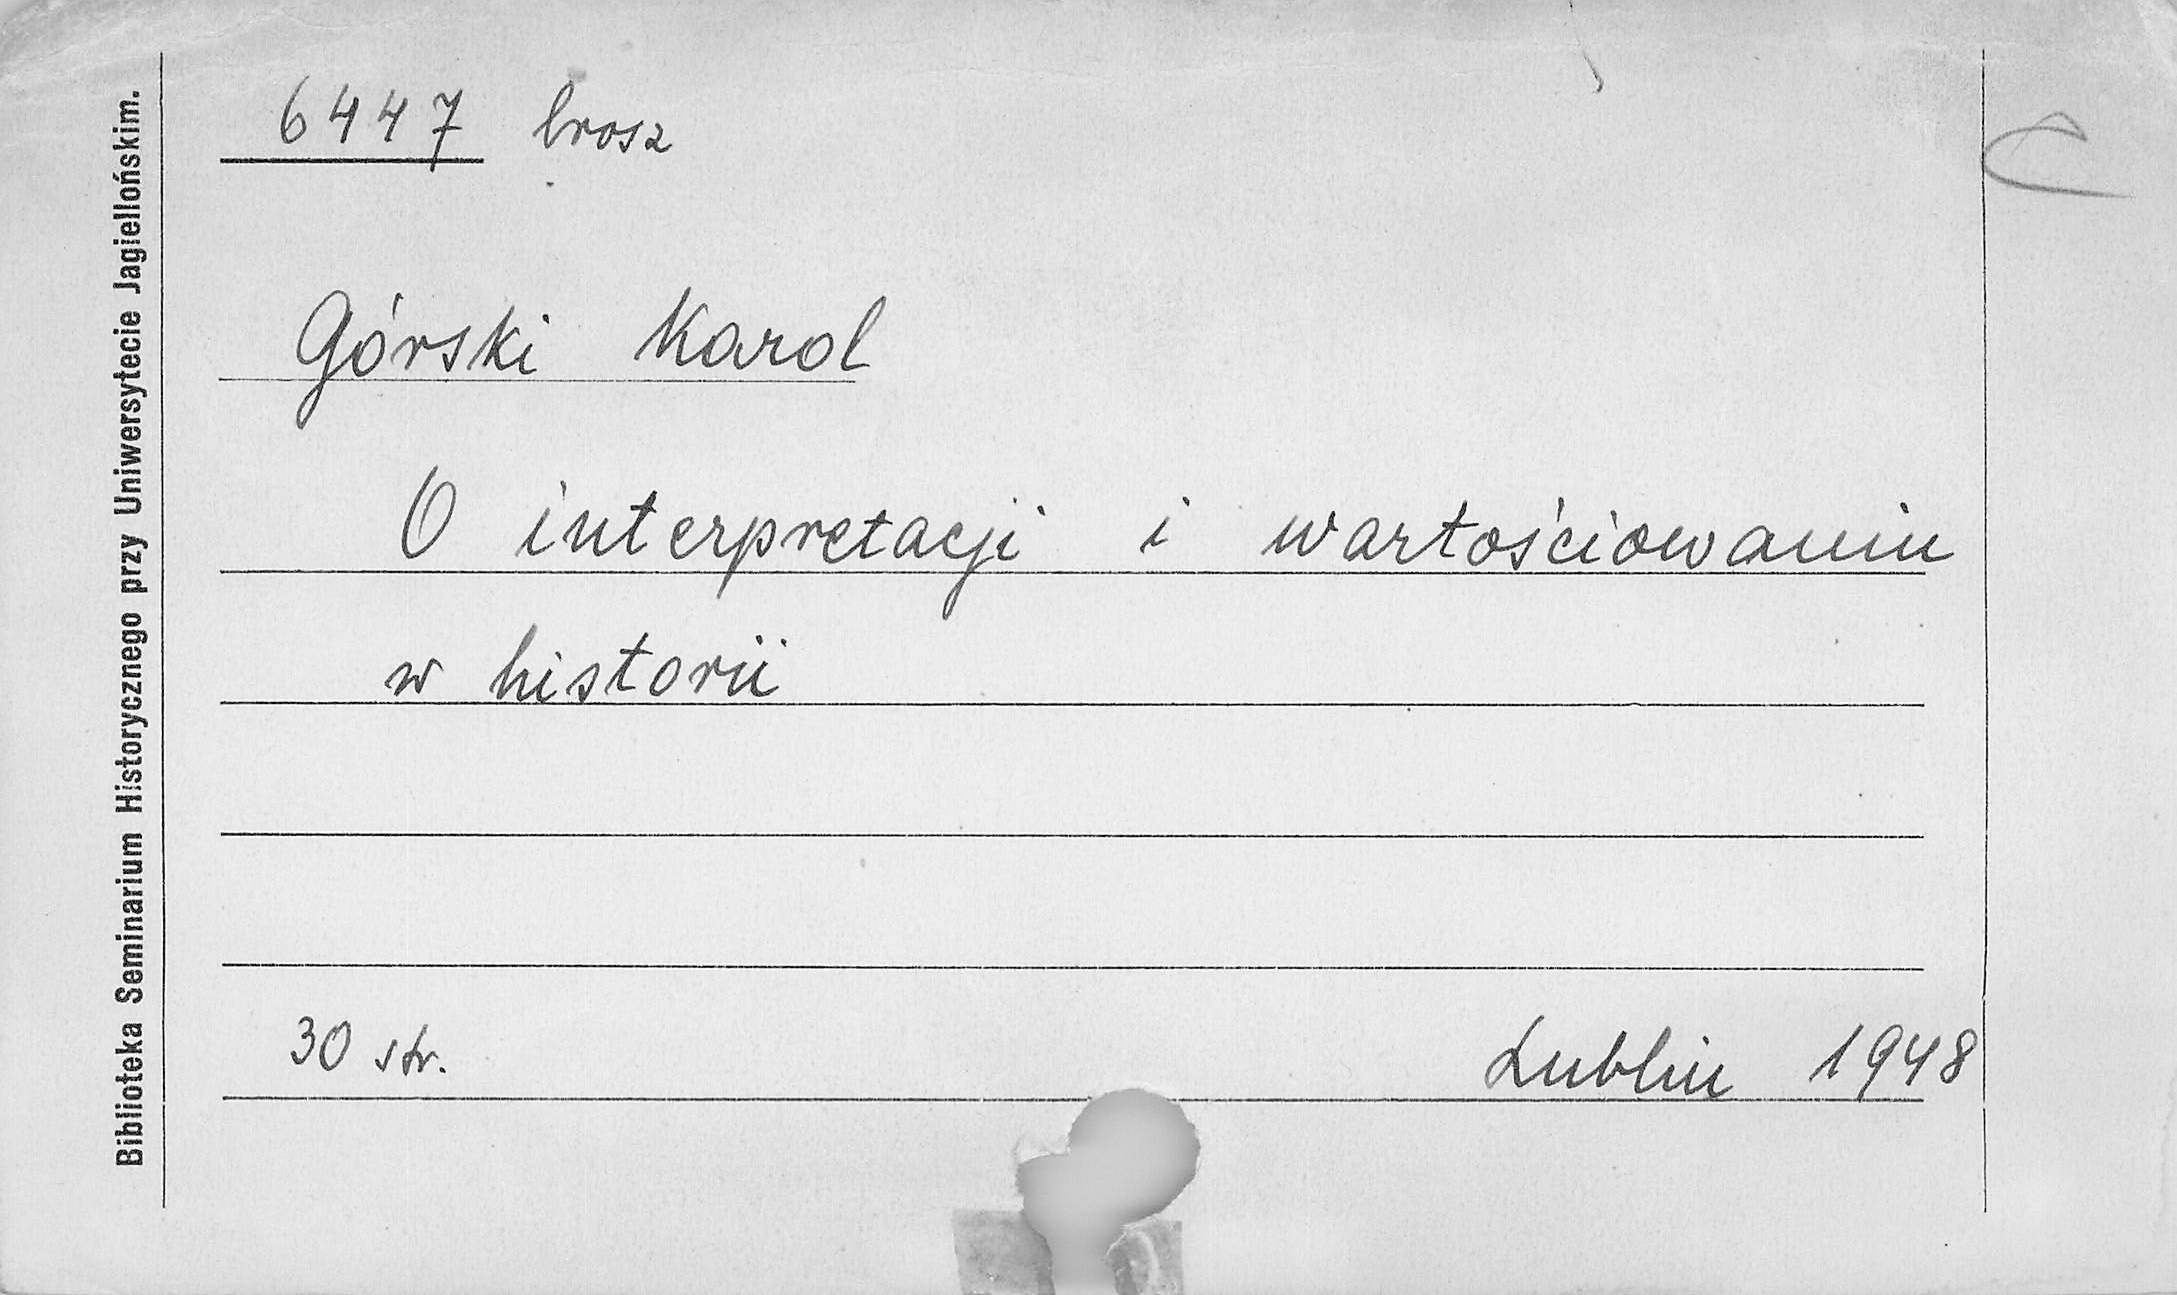 6447 brosz
C
Górski Karol
O interpretacji i wartościowaniu
w historii
30 str. Lublin 1948
Biblioteka Seminarium Historycznego przy Uniwersytecie Jagiellońskim.